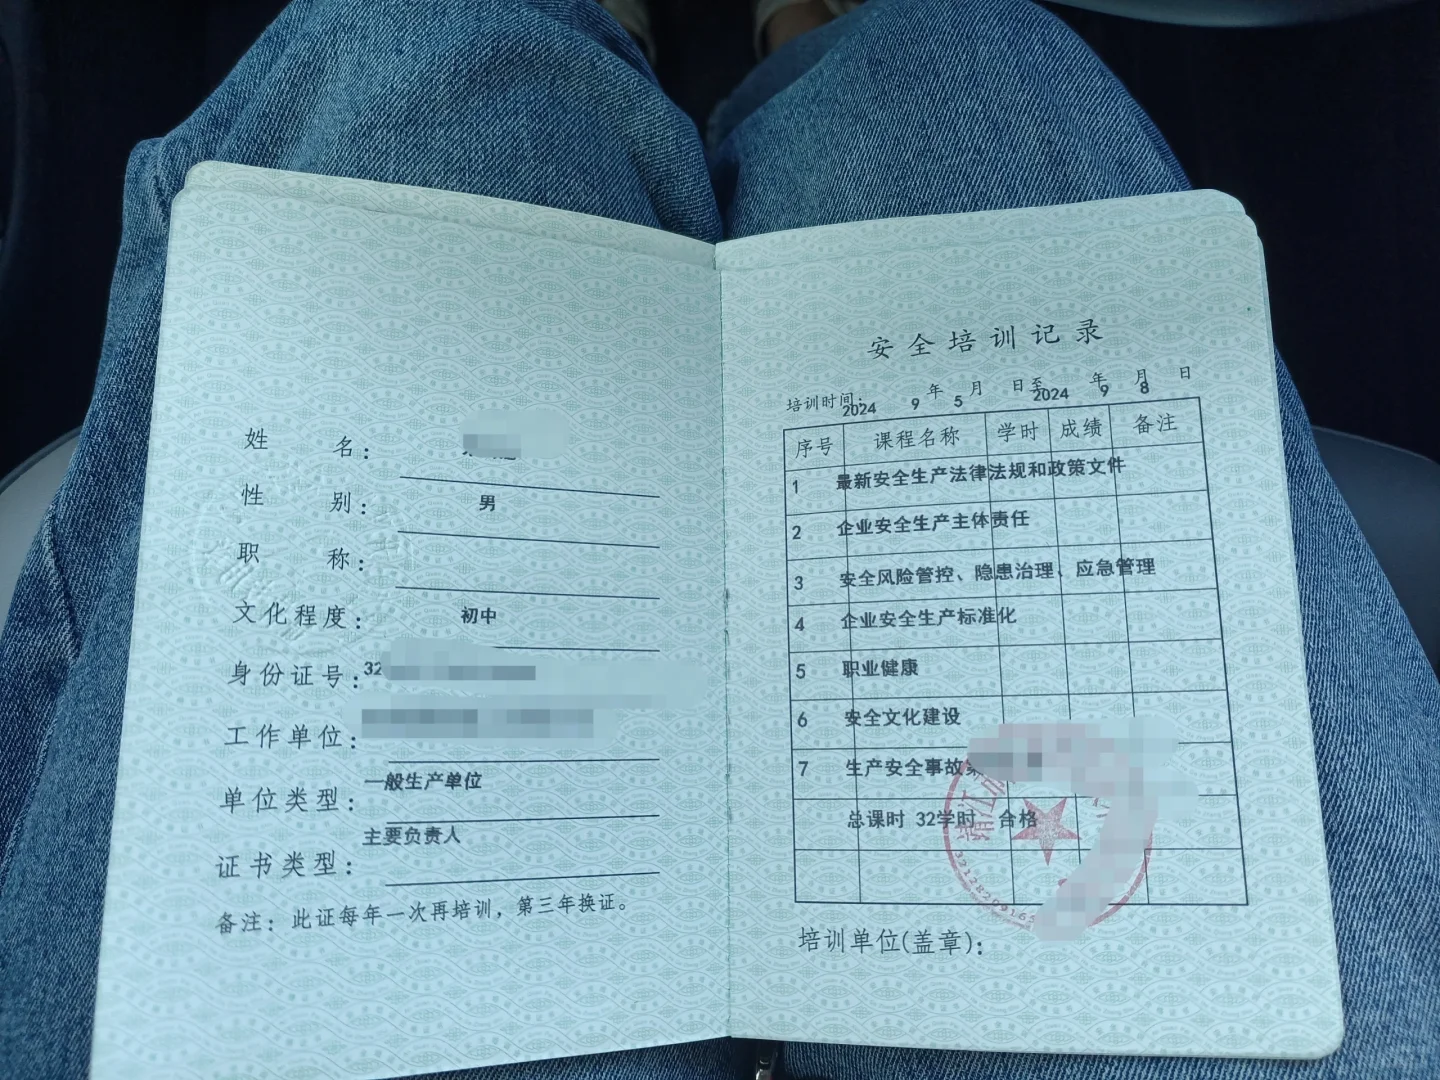 姓名：
性别：男
职称：
文化程度：初中
身份证号：32
工作单位：
单位类型：一般生产单位
证书类型：主要负责人
备注：此证每年一次再培训，第三年换证。
安全培训记录
培训时间：2024年9月5日至2024年9月8日
序号 课程名称 学时 成绩 备注
1 最新安全生产法律法规和政策文件
2 企业安全生产主体责任
3 安全风险管控、隐患治理、应急管理
4 企业安全生产标准化
5 职业健康
6 安全文化建设
7 生产安全事故
总课时 32学时 合格
靖江市
培训单位(盖章)：